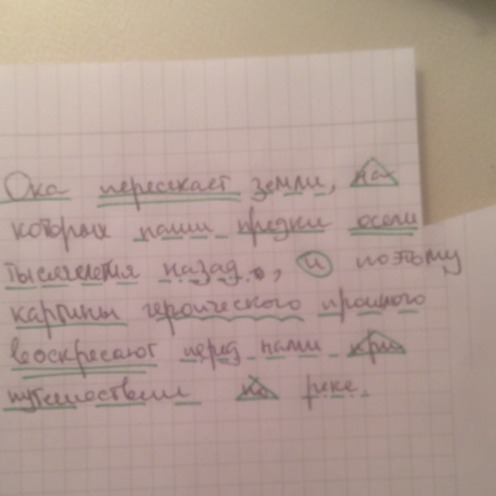 Ока пересекает земли, на
которых наши предки осели
тысячелетия назад, и поэтому
картины героического прошлого
воскресают перед нами при
путешествии по реке.